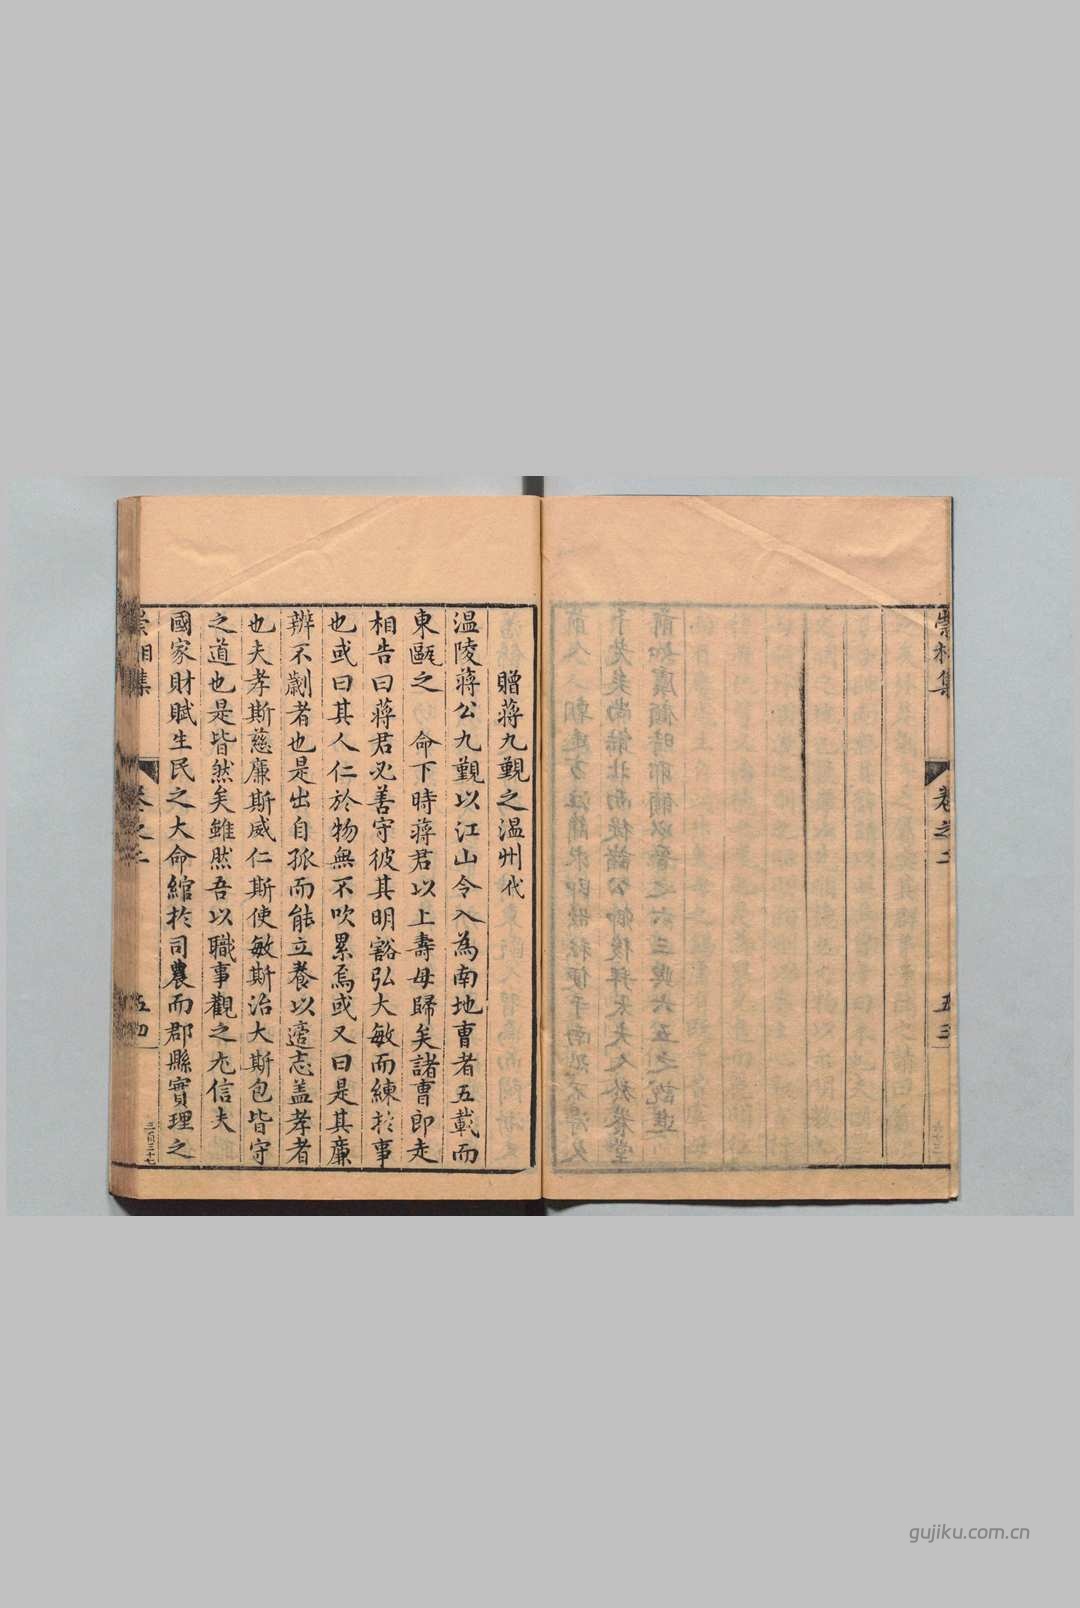 崇相集
卷之二
五三
贈蔣九覲之温州代
温陵蔣公九覲以江山令入為南地曹者五載而
東甌之 命下時蔣君以上壽母歸矣諸曹郎走
相告曰蔣君必善守彼其明豁弘大敏而練於事
也或曰其人仁於物無不吹累焉或又曰是其廉
辨不劌者也是出自孤而能立養以適志盖孝者
也夫孝斯慈廉斯威仁斯使敏斯治大斯包皆守
之道也是皆然矣雖然吾以職事觀之尤信夫
國家財賦生民之大命綰於司農而郡縣實理之
崇相集
卷之二
五四
三百三十七
gujiku.com.cn